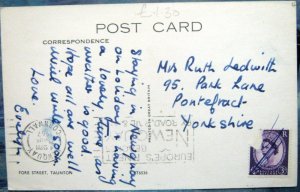 £1.30
POST CARD
CORRESPONDENCE
Staying in Newquay
on holiday, having
a lovely time and
weather is good.
Hope all are well
will write soon
Love.
Evelyn.
Mrs Ruth Ledwith
95, Park Lane
Pontefract
Yorkshire
PRINTED IN GREAT BRITAIN
NEWQUAY
CORNWALL
EUROPE'S
NEW
FORE STREET, TAUNTON